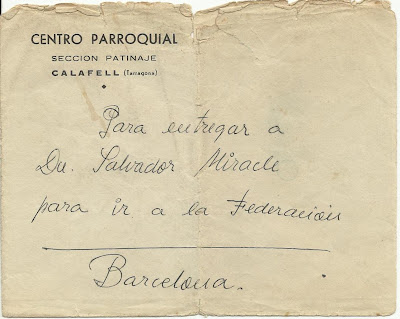 CENTRO PARROQUIAL
SECCION PATINAJE
CALAFELL (Tarragona)
Para entregar a
Dn. Salvador Miracle
para ir a la Federación
Barcelona.